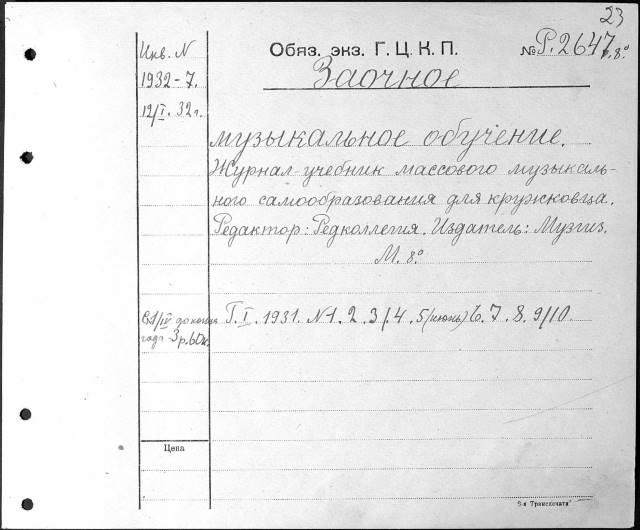 23
Инв. N
1932-7.
12/I. 32 г.
Обяз. экз. Г. Ц. К. П.
№ Р. 2647, 8°
Заочное
музыкальное обучение.
Журнал-учебник массового музыкаль-
ного самообразования для кружковца.
Редактор: Редколлегия. Издатель: Музгиз.
М. 8°
С 1/IV до конца
года 3 р. 60 к.
Г. I. 1931. N 1. 2. 3/4. 5 (июнь) 6. 7. 8. 9/10.
Цена
5-я Транспечати